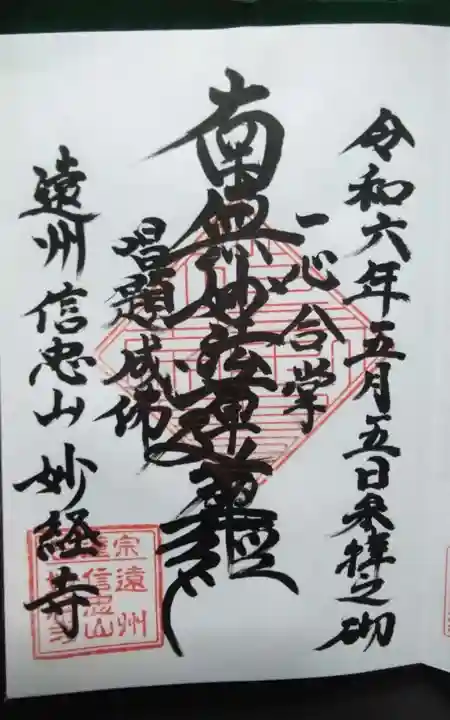 令和六年五月五日来拝之砌
一心合掌
南無妙法蓮華経
唱題成佛
遠州信忠山妙経寺
遠州
信忠山